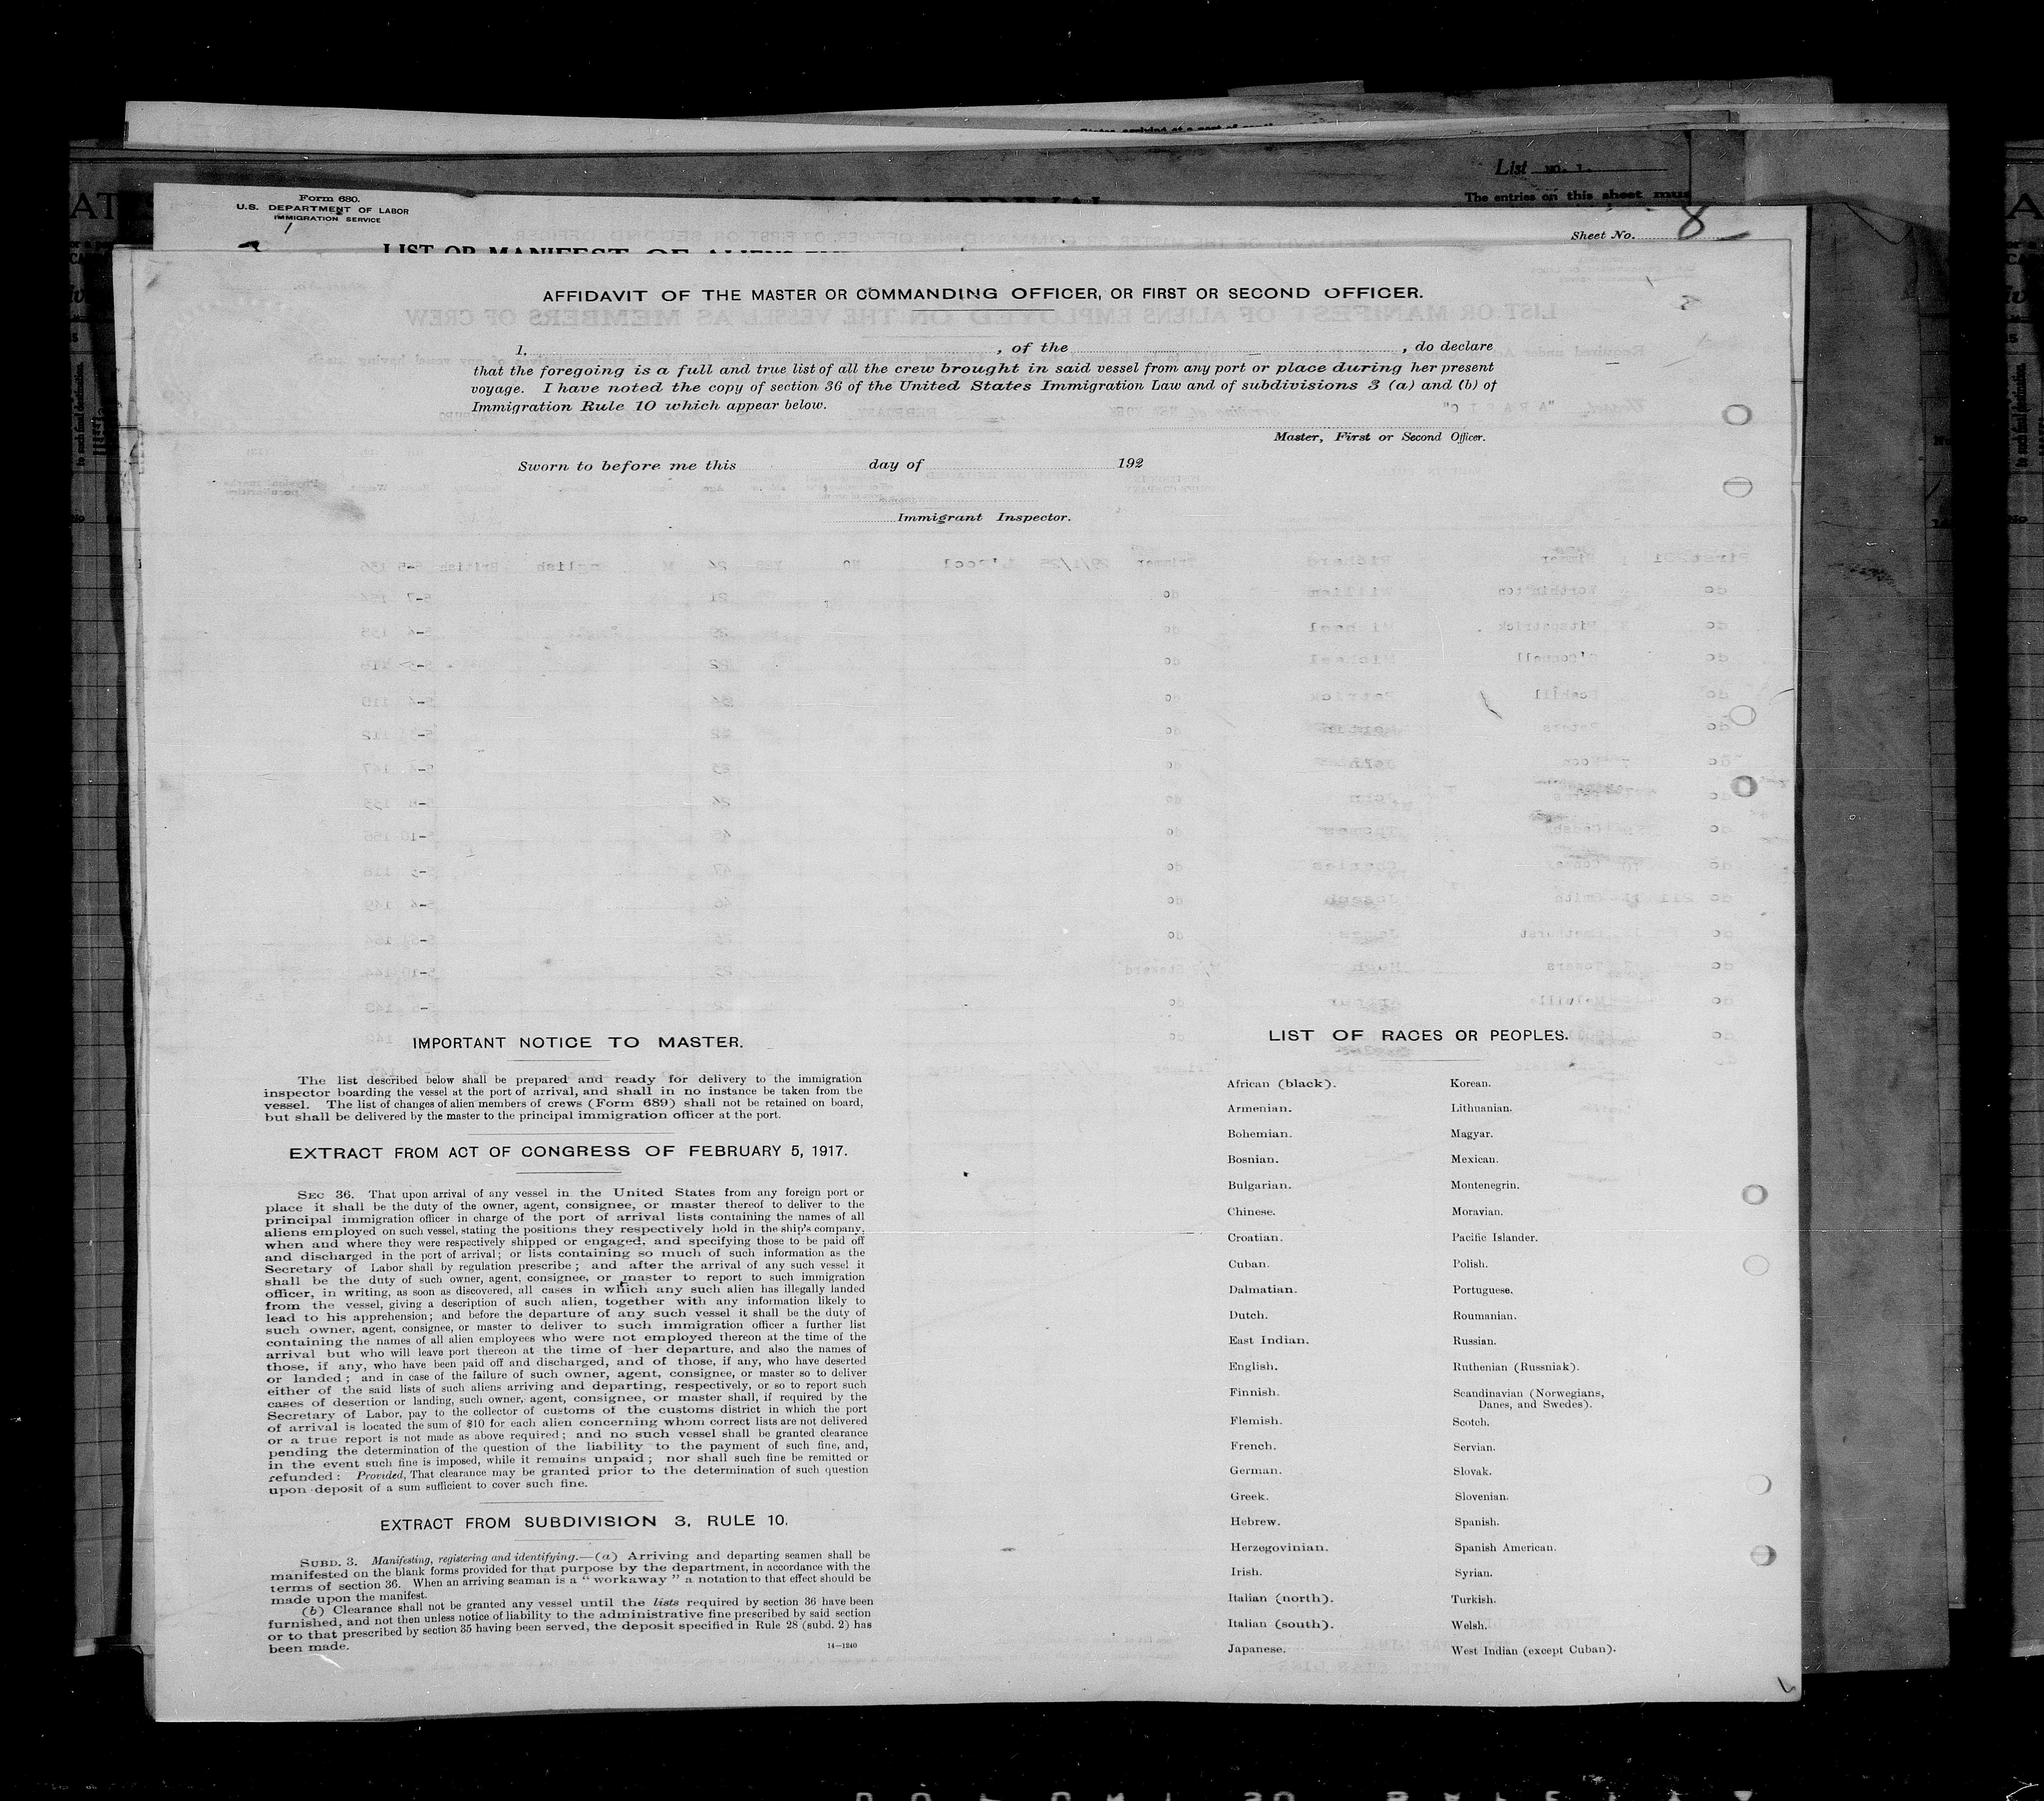 List NO. 1.
The entries on this sheet mus
Form 680.
U.S. DEPARTMENT OF LABOR
IMMIGRATION SERVICE
Sheet No. 8
AFFIDAVIT OF THE MASTER OR COMMANDING OFFICER, OR FIRST OR SECOND OFFICER.
I, , of the , do declare
that the foregoing is a full and true list of all the crew brought in said vessel from any port or place during her present
voyage. I have noted the copy of section 36 of the United States Immigration Law and of subdivisions 3 (a) and (b) of
Immigration Rule 10 which appear below.
Master, First or Second Officer.
Sworn to before me this day of 192
Immigrant Inspector.
IMPORTANT NOTICE TO MASTER.
The list described below shall be prepared and ready for delivery to the immigration
inspector boarding the vessel at the port of arrival, and shall in no instance be taken from the
vessel. The list of changes of alien members of crews (Form 689) shall not be retained on board,
but shall be delivered by the master to the principal immigration officer at the port.
EXTRACT FROM ACT OF CONGRESS OF FEBRUARY 5, 1917.
SEC 36. That upon arrival of any vessel in the United States from any foreign port or
place it shall be the duty of the owner, agent, consignee, or master thereof to deliver to the
principal immigration officer in charge of the port of arrival lists containing the names of all
aliens employed on such vessel, stating the positions they respectively hold in the ship's company,
when and where they were respectively shipped or engaged, and specifying those to be paid off
and discharged in the port of arrival; or lists containing so much of such information as the
Secretary of Labor shall by regulation prescribe; and after the arrival of any such vessel it
shall be the duty of such owner, agent, consignee, or master to report to such immigration
officer, in writing, as soon as discovered, all cases in which any such alien has illegally landed
from the vessel, giving a description of such alien, together with any information likely to
lead to his apprehension; and before the departure of any such vessel it shall be the duty of
such owner, agent, consignee, or master to deliver to such immigration officer a further list
containing the names of all alien employees who were not employed thereon at the time of the
arrival but who will leave port thereon at the time of her departure, and also the names of
those, if any, who have been paid off and discharged, and of those, if any, who have deserted
or landed; and in case of the failure of such owner, agent, consignee, or master so to deliver
either of the said lists of such aliens arriving and departing, respectively, or so to report such
cases of desertion or landing, such owner, agent, consignee, or master shall, if required by the
Secretary of Labor, pay to the collector of customs of the customs district in which the port
of arrival is located the sum of $10 for each alien concerning whom correct lists are not delivered
or a true report is not made as above required; and no such vessel shall be granted clearance
pending the determination of the question of the liability to the payment of such fine, and,
in the event such fine is imposed, while it remains unpaid; nor shall such fine be remitted or
refunded: Provided, That clearance may be granted prior to the determination of such question
upon deposit of a sum sufficient to cover such fine.
EXTRACT FROM SUBDIVISION 3, RULE 10.
SUBD. 3. Manifesting, registering and identifying.—(a) Arriving and departing seamen shall be
manifested on the blank forms provided for that purpose by the department, in accordance with the
terms of section 36. When an arriving seaman is a "workaway" a notation to that effect should be
made upon the manifest.
(b) Clearance shall not be granted any vessel until the lists required by section 36 have been
furnished, and not then unless notice of liability to the administrative fine prescribed by said section
or to that prescribed by section 35 having been served, the deposit specified in Rule 28 (subd. 2) has
been made.
14—1240
LIST OF RACES OR PEOPLES.
African (black).
Armenian.
Bohemian.
Bosnian.
Bulgarian.
Chinese.
Croatian.
Cuban.
Dalmatian.
Dutch.
East Indian.
English.
Finnish.
Flemish.
French.
German.
Greek.
Hebrew.
Herzegovinian.
Irish.
Italian (north).
Italian (south).
Japanese.
Korean.
Lithuanian.
Magyar.
Mexican.
Montenegrin.
Moravian.
Pacific Islander.
Polish.
Portuguese.
Roumanian.
Russian.
Ruthenian (Russniak).
Scandinavian (Norwegians,
Danes, and Swedes).
Scotch.
Servian.
Slovak.
Slovenian.
Spanish.
Spanish American.
Syrian.
Turkish.
Welsh.
West Indian (except Cuban).